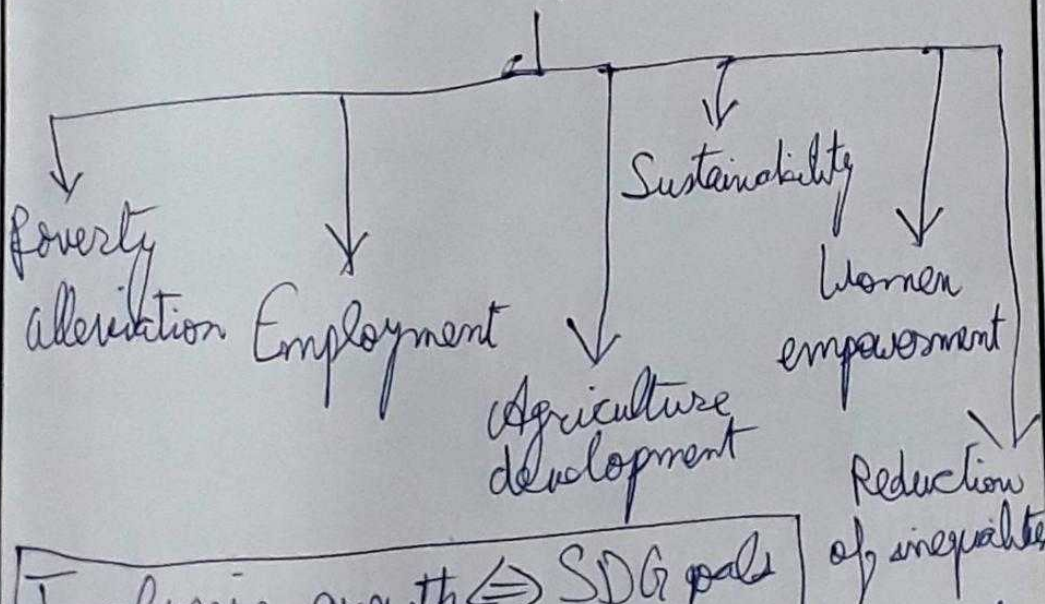 Poverty
alleviation
Employment
Agriculture
development
Sustainability
Women
empowerment
Reduction
of inequalities
growth <=> SDG goals